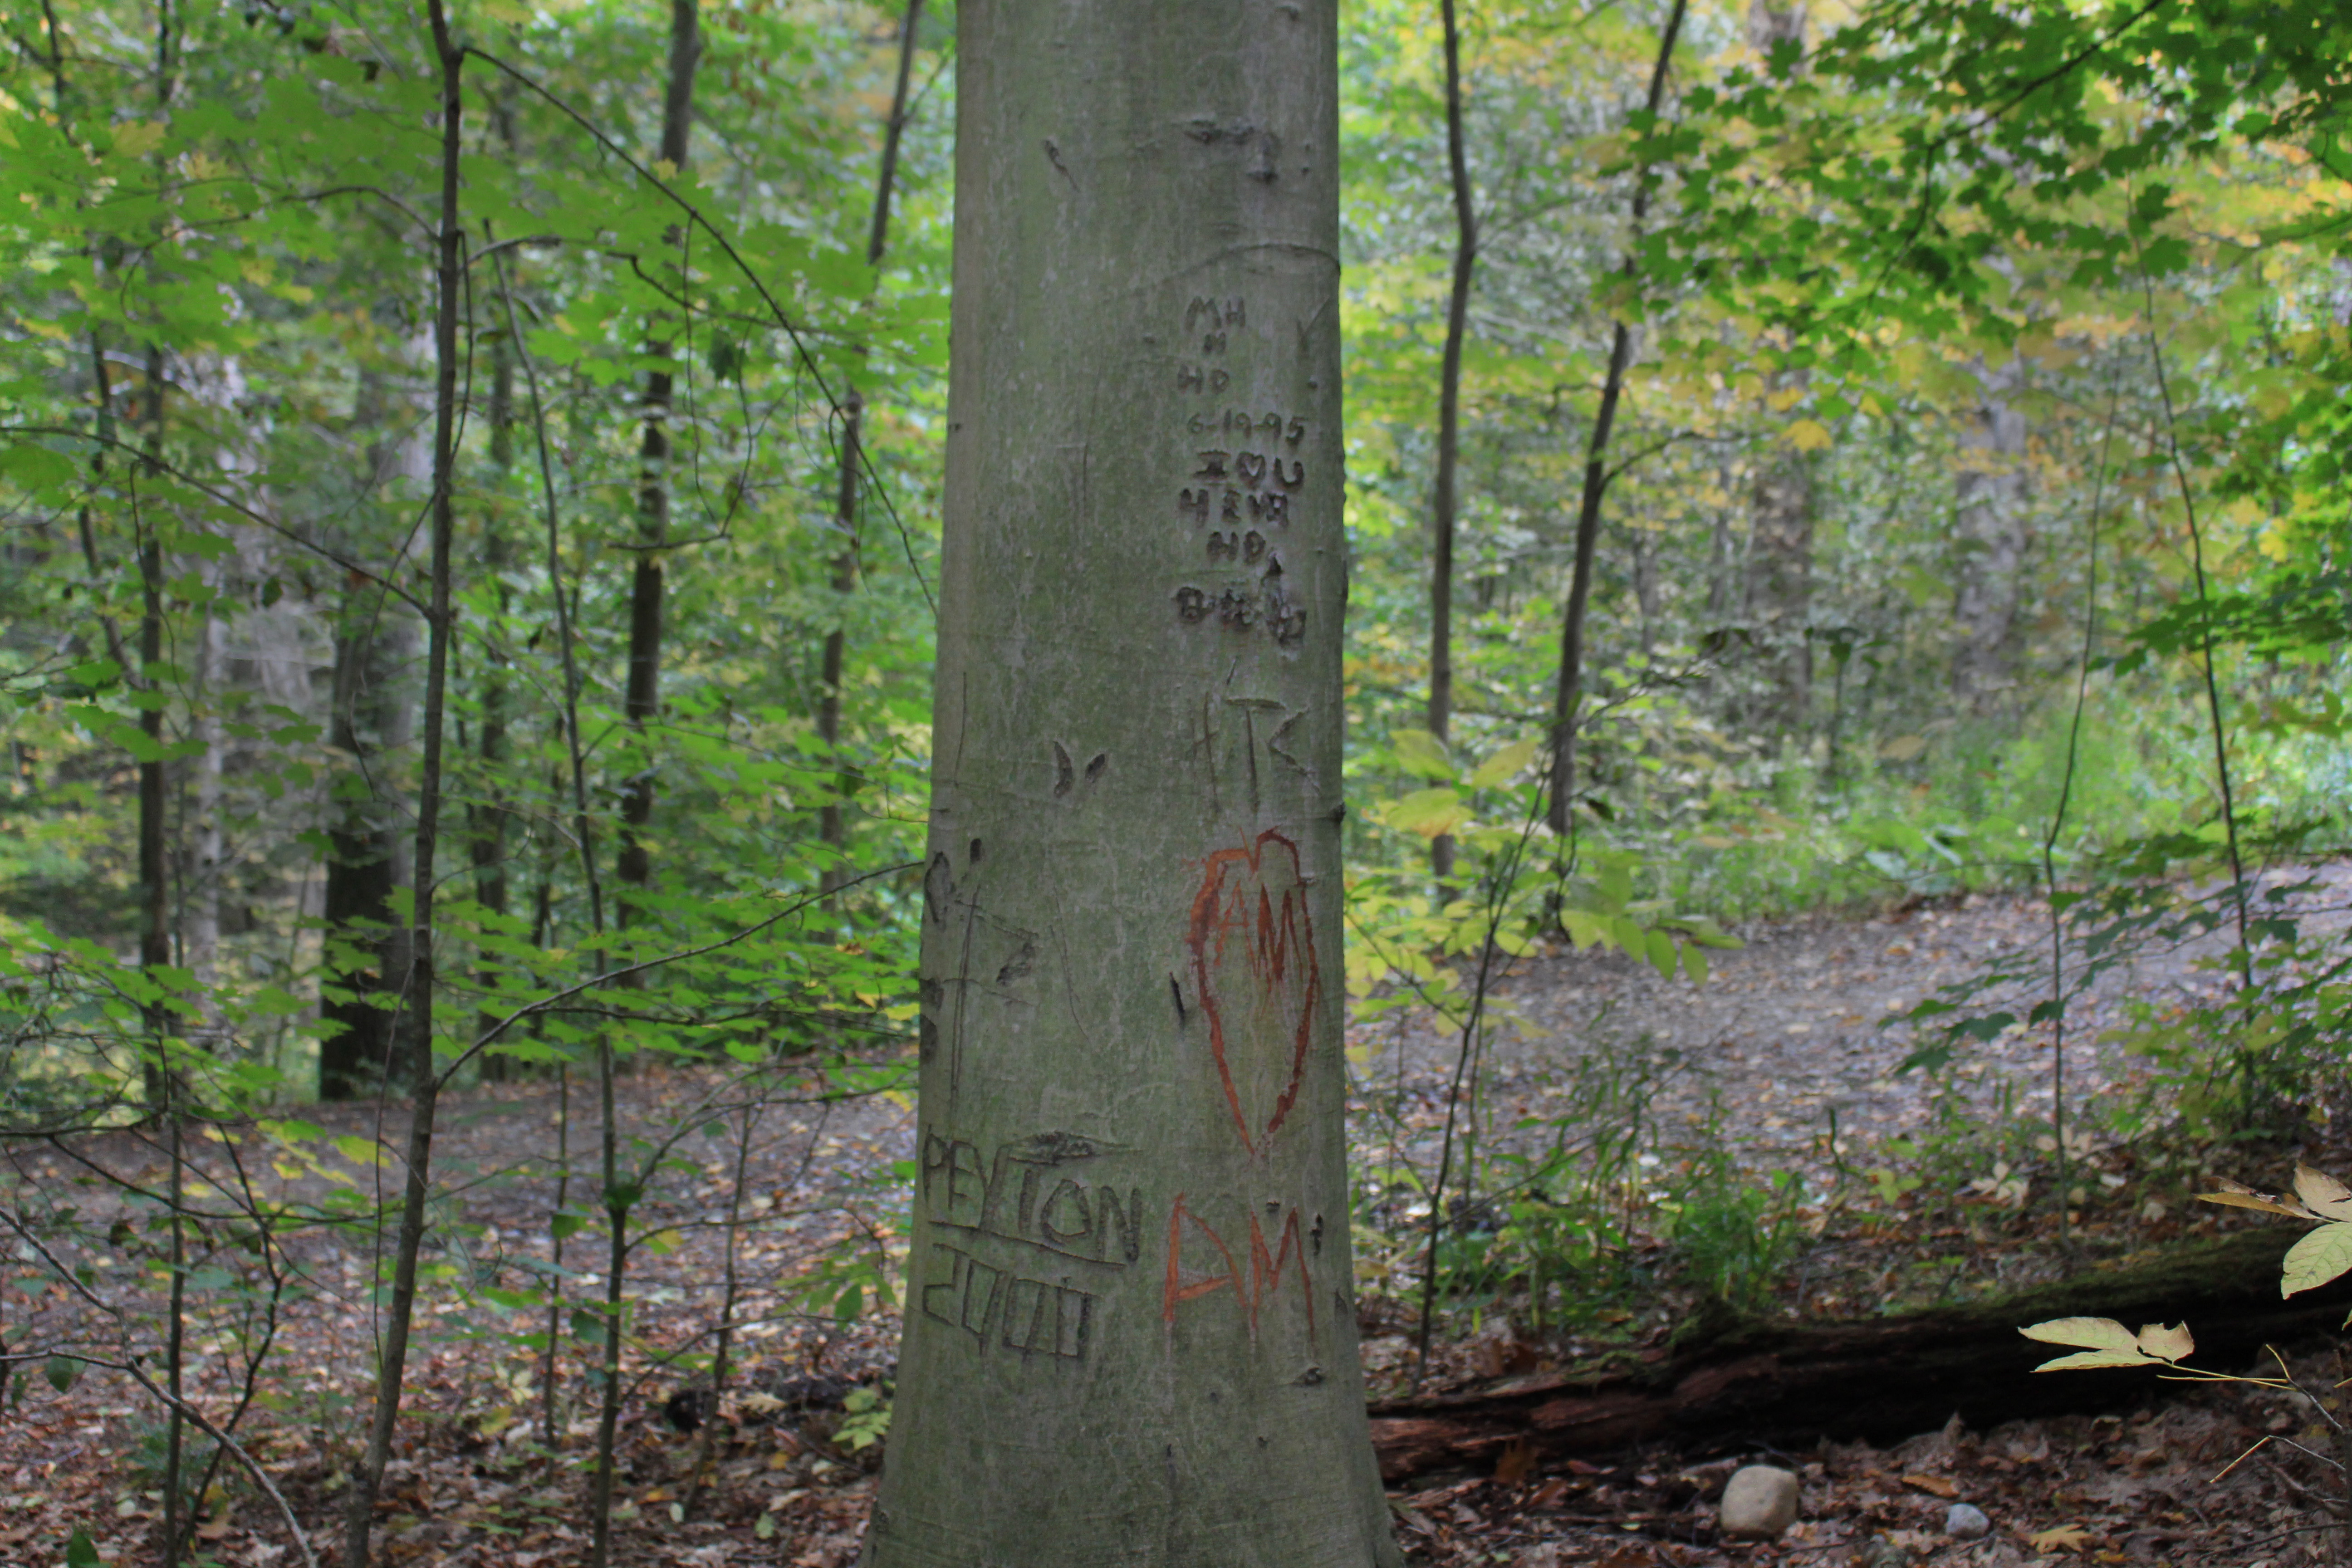 MH
N
HD
6-19-95
I ♥ U
4 EVR
HD
+TK
AM
PEYTON
2000
AM